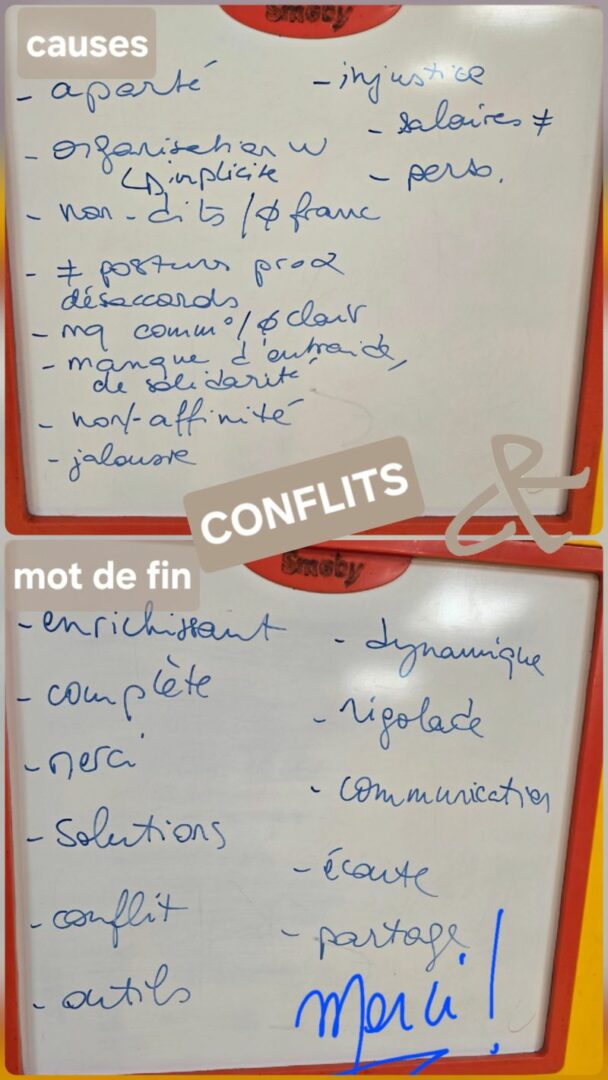 Smoby
causes
- aparté
- organisation w
↳ implicite
- non-dits / ø franc
- ≠ postures pro
désaccords
- mq comm° / ø clair
- manque d'entraide,
de solidarité
- non-affinité
- jalousie
- injustice
- salaires ≠
- perso.
CONFLITS
&
Smoby
mot de fin
- enrichissant
- complète
- merci
- Solutions
- conflit
- outils
- dynamique
- rigolade
- communication
- écoute
- partage
merci !